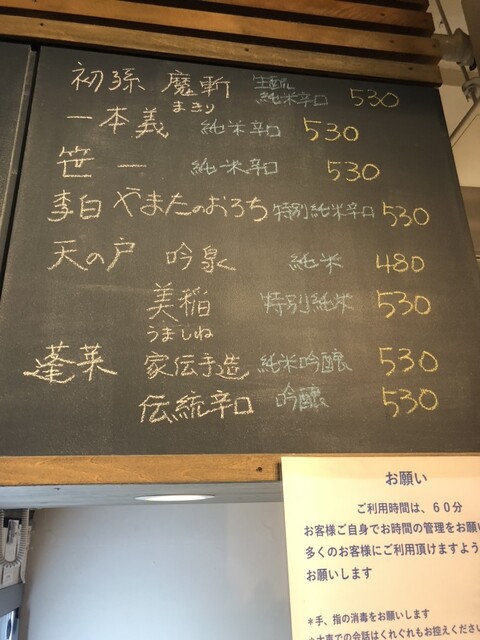 初孫 魔斬 生酛 純米辛口 530
まきり
一本義 純米辛口 530
笹一 純米辛口 530
李白 やまたのおろち 特別純米辛口 530
天の戸 吟泉 純米 480
美稲 特別純米 530
うましね
蓬莱 家伝手造 純米吟醸 530
伝統辛口 吟醸 530
お願い
ご利用時間は、60分
お客様ご自身でお時間の管理をお願い
多くのお客様にご利用頂けますよう
お願いします
*手、指の消毒をお願いします
での会話はくれぐれもお控えください